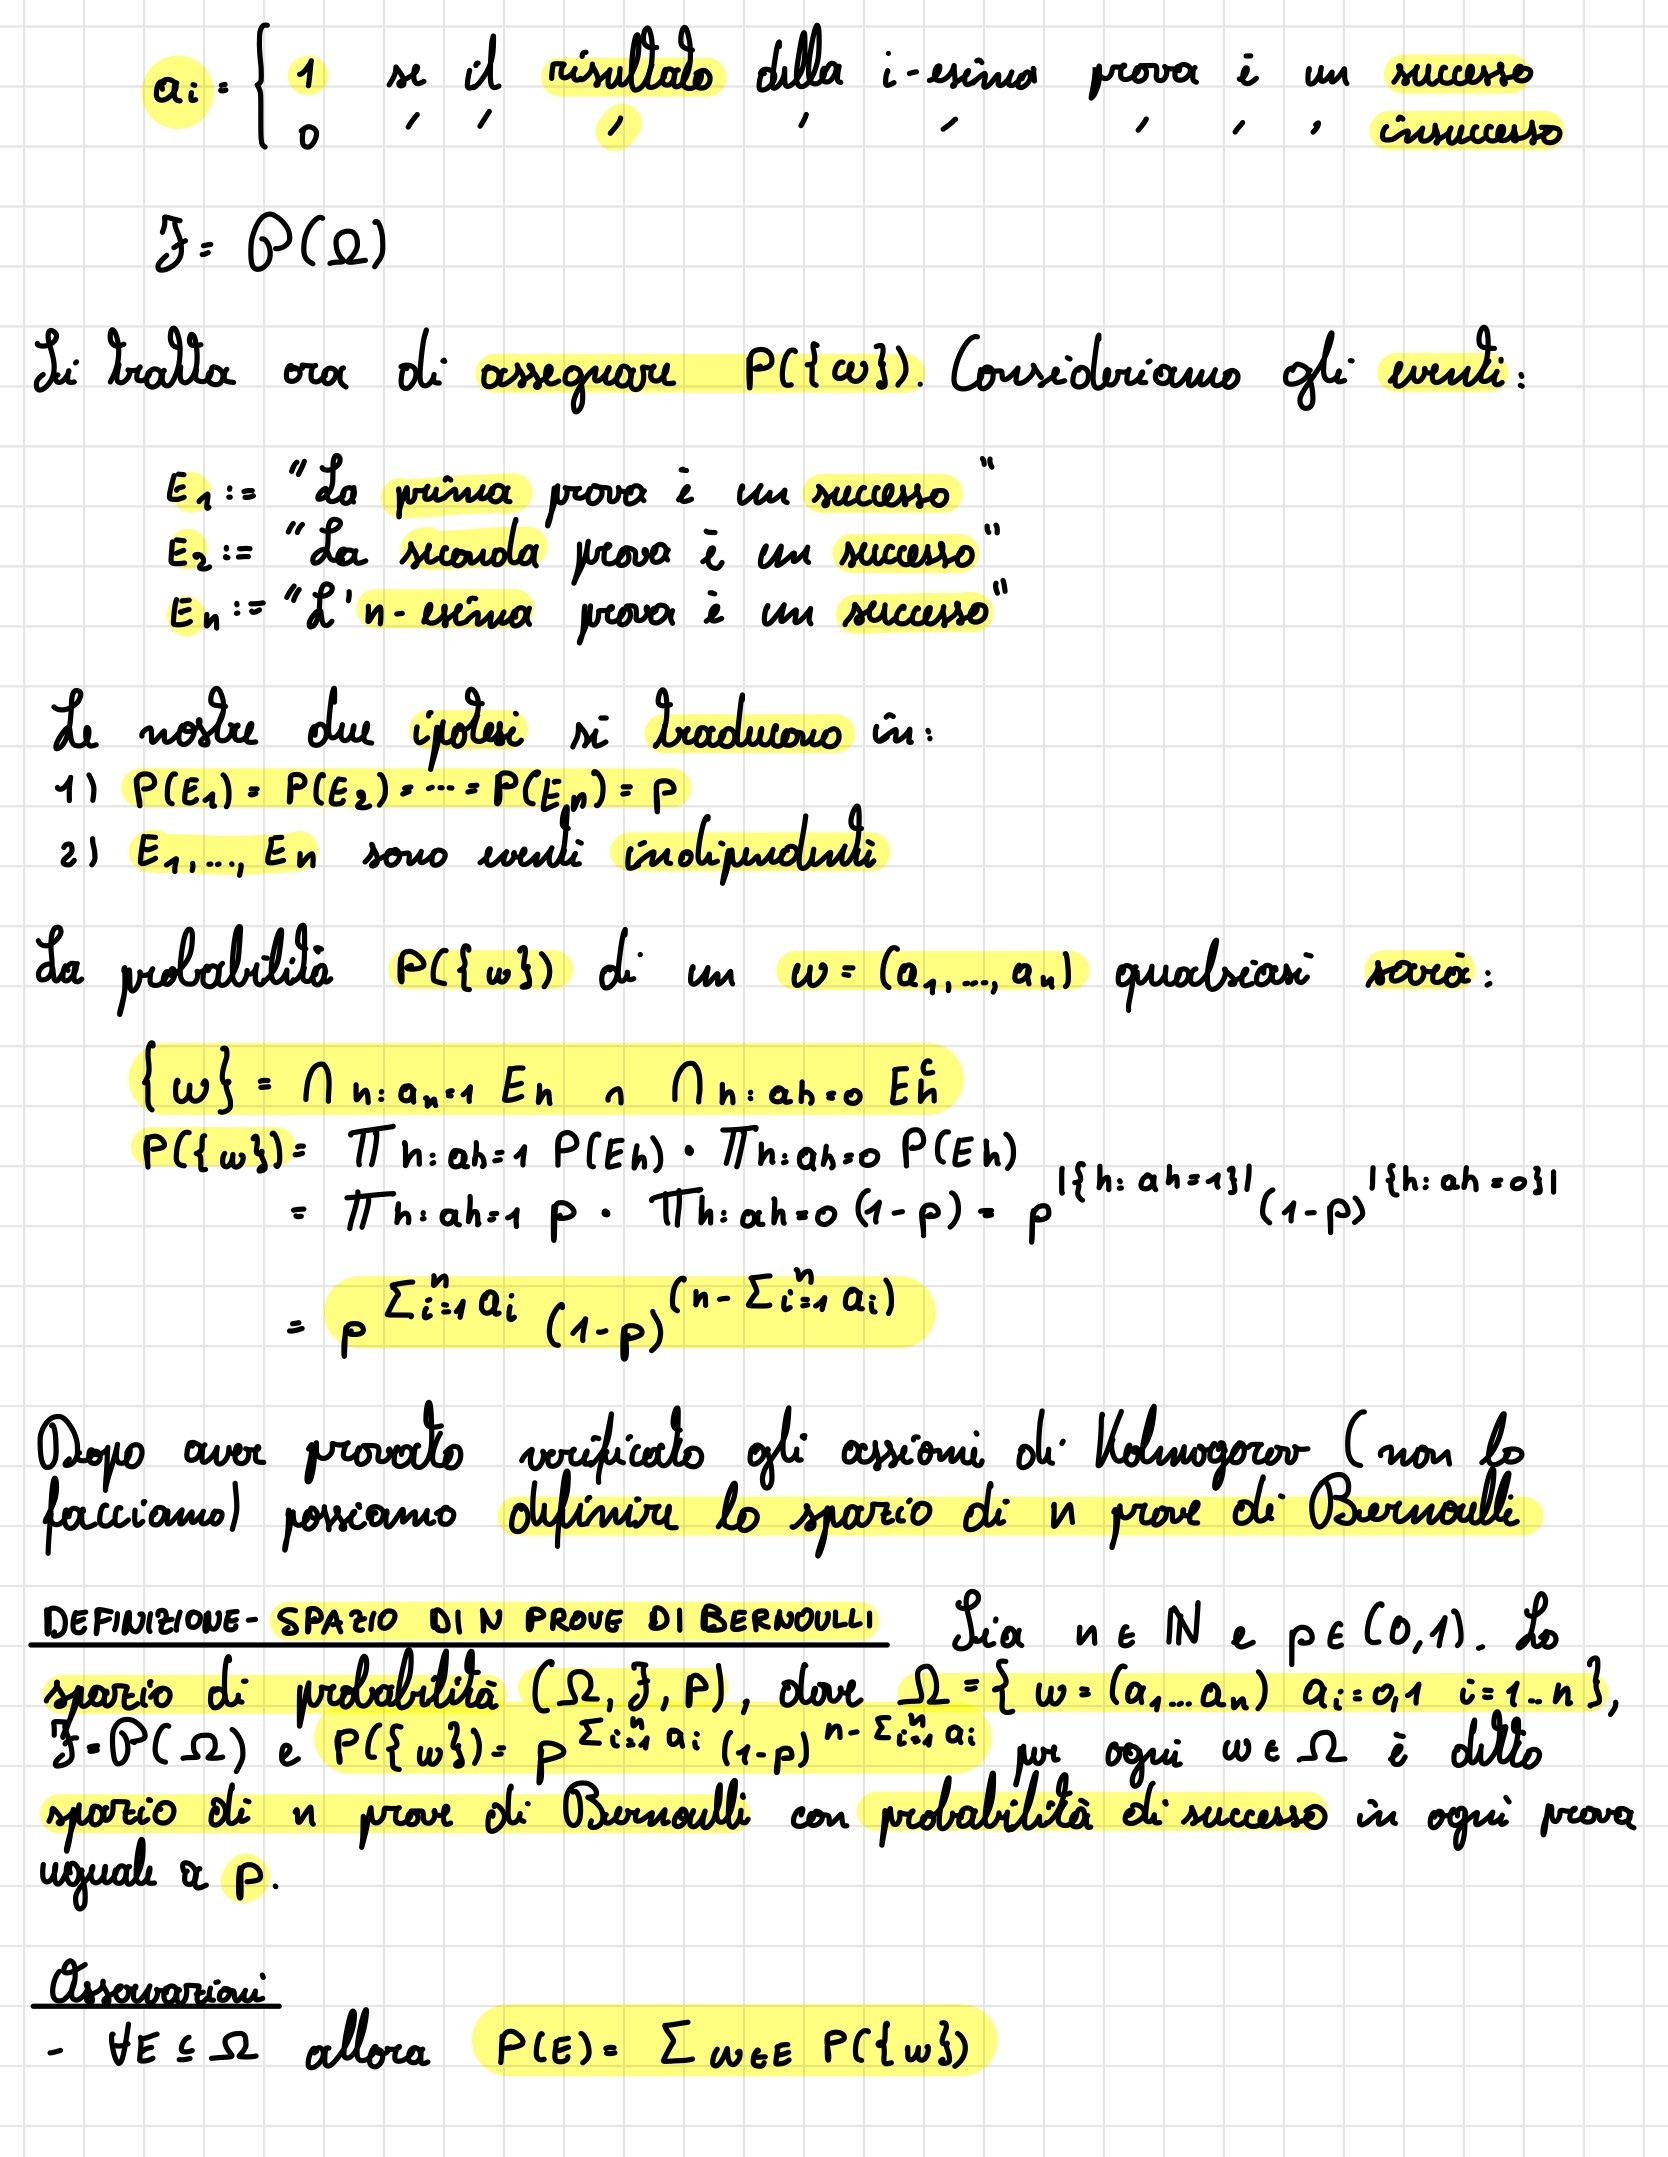 ai = { 1 se il risultato della i-esima prova è un successo
0 ′ ′ ′ ′ ′ ′ ′ ′ insuccesso
F = P(Ω)
Si tratta ora di assegnare P({ω}). Consideriamo gli eventi:
E1 := "La prima prova è un successo"
E2 := "La seconda prova è un successo"
En := "L'n-esima prova è un successo"
Le nostre due ipotesi si traducono in:
1) P(E1) = P(E2) = ... = P(En) = p
2) E1,..., En sono eventi indipendenti
La probabilità P({ω}) di un ω = (a1,..., an) qualsiasi sarà:
{ω} = ∩ h: ah=1 Eh ∩ ∩ h: ah=0 Eh^c
P({ω}) = ∏ h: ah=1 P(Eh) · ∏ h: ah=0 P(Eh)
= ∏ h: ah=1 p · ∏ h: ah=0 (1-p) = p^|{h: ah=1}| (1-p)^|{h: ah=0}|
= p^Σ_{i=1}^n ai (1-p)^(n-Σ_{i=1}^n ai)
Dopo aver provato verificato gli assiomi di Kolmogorov (non lo
facciamo) possiamo definire lo spazio di n prove di Bernoulli
DEFINIZIONE- SPAZIO DI N PROVE DI BERNOULLI Sia n ∈ ℕ e p ∈ (0,1). Lo
spazio di probabilità (Ω, F, P), dove Ω = { ω = (a1...an) ai=0,1 i=1..n },
F=P(Ω) e P({ω}) = p^Σ_{i=1}^n ai (1-p)^n-Σ_{i=1}^n ai per ogni ω ∈ Ω è detto
spazio di n prove di Bernoulli con probabilità di successo in ogni prova
uguale a p.
Osservazioni
- ∀E ⊆ Ω allora P(E) = Σ ω∈E P({ω})